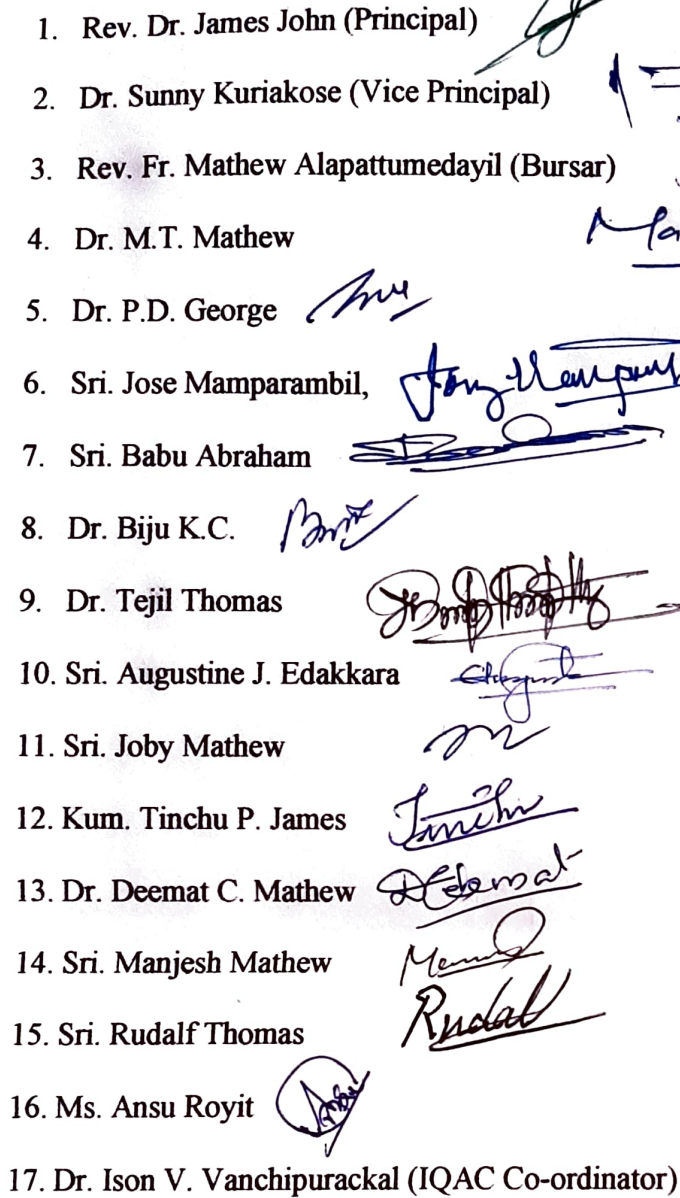 1. Rev. Dr. James John (Principal)
2. Dr. Sunny Kuriakose (Vice Principal)
3. Rev. Fr. Mathew Alapattumedayil (Bursar)
4. Dr. M.T. Mathew
5. Dr. P.D. George
6. Sri. Jose Mamparambil,
7. Sri. Babu Abraham
8. Dr. Biju K.C.
9. Dr. Tejil Thomas
10. Sri. Augustine J. Edakkara
11. Sri. Joby Mathew
12. Kum. Tinchu P. James
13. Dr. Deemat C. Mathew
14. Sri. Manjesh Mathew
15. Sri. Rudalf Thomas
16. Ms. Ansu Royit
17. Dr. Ison V. Vanchipurackal (IQAC Co-ordinator)